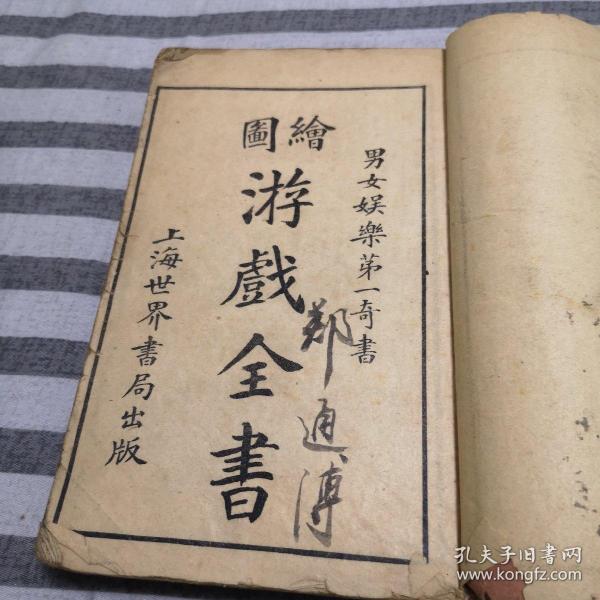 男女娱樂第一奇書
繪圖
游戲全書
鄭通溥
上海世界書局出版
孔夫子旧书网
www.kongfz.com